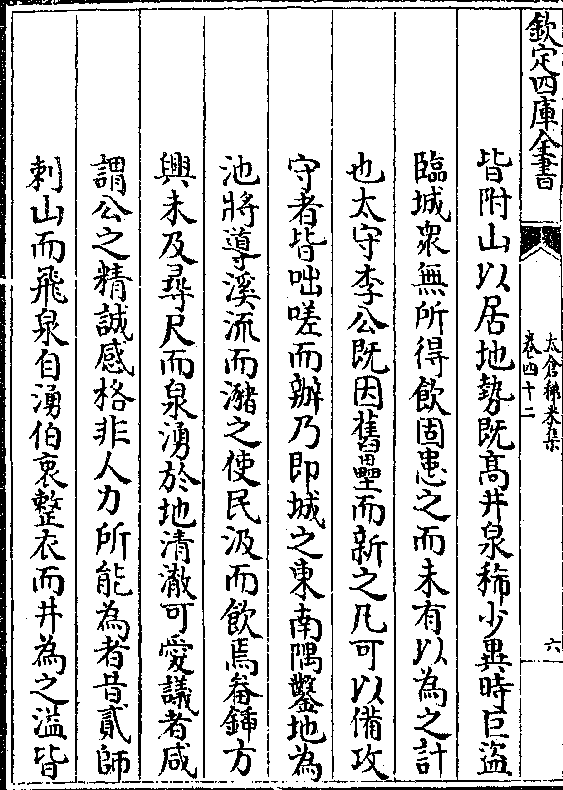 欽定四庫全書
太倉稊米集
卷四十二
六
皆附山以居地勢既髙井泉稀少異時巨盗
臨城衆無所得飲固患之而未有以為之計
也太守李公既因舊壘而新之凡可以備攻
守者皆咄嗟而辦乃即城之東南隅鑿地為
池將導溪流而瀦之使民汲而飲焉畚鍤方
興未及尋尺而泉湧於地清澈可愛議者咸
謂公之精誠感格非人力所能為者昔貳師
刺山而飛泉自湧伯衷整衣而井為之溢皆